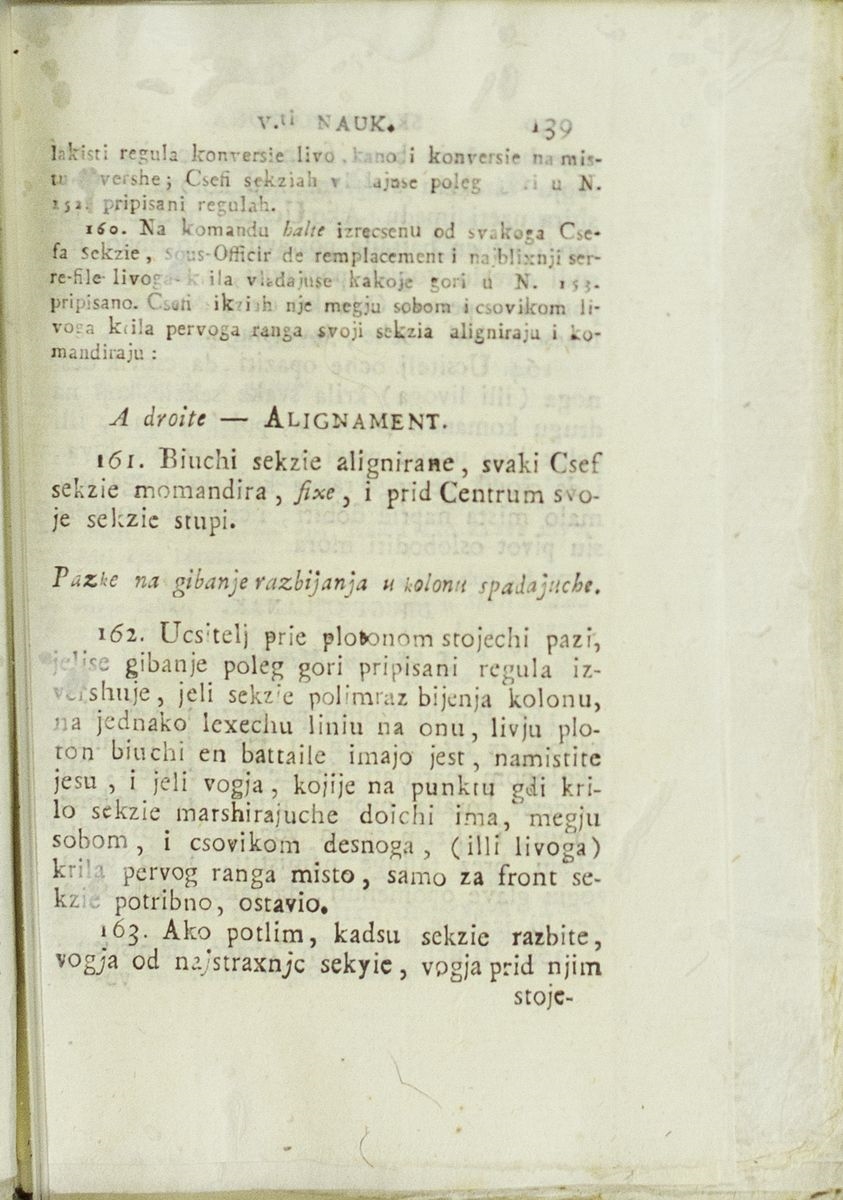 V.ti NAUK. 139
lakisti regula konversie livo kanodi konversie na mis-
vershe; Csefi sekziah poleg u N.
152. pripisani regulah.
160. Na komandu halte izrecsenu od svakoga Cse-
fa Sekzie, sous-Officir de remplacement i najblixnji ser-
re-file livoga krila vladajuse kakoje gori u N. 153.
pripisano. Csefi sikziah nje megju sobom i csovikom li-
voga krila pervoga ranga svoji sekzia aligniraju i ko-
mandiraju :
A droite — ALIGNAMENT.
161. Biuchi sekzie alignirane, svaki Csef
sekzie momandira, fixe, i prid Centrum svo-
je sekzie stupi.
Pazke na gibanje razbijanja u kolonu spadajuche.
162. Ucsitelj prie plotonom stojechi pazi,
jelise gibanje poleg gori pripisani regula iz-
vershuje, jeli sekzie polimraz bijenja kolonu,
na jednako lexechu liniu na onu, livju plo-
ton biuchi en battaile imajo jest, namistite
jesu, i jeli vogja, kojije na punktu gdi kri-
lo sekzie marshirajuche doichi ima, megju
sobom, i csovikom desnoga, (illi livoga)
krila pervog ranga misto, samo za front se-
kzie potribno, ostavio.
163. Ako potlim, kadsu sekzie razbite,
vogja od najstraxnje sekyie, vogja prid njim
stoje-